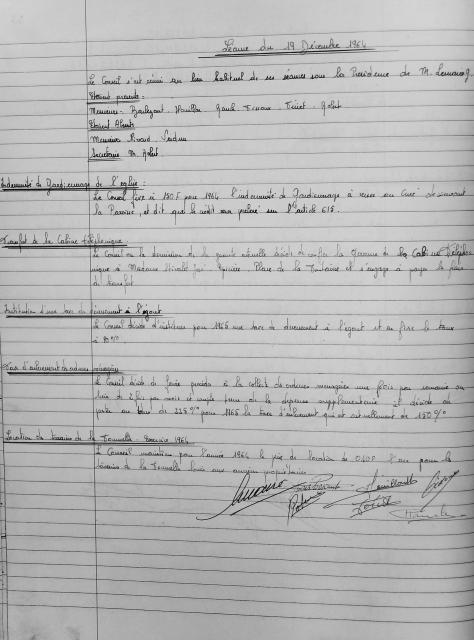 Séance du 19 Décembre 1964
Le Conseil s'est réuni au lieu habituel de ses séances sous la Présidence de M.
Etaient présents :
Messieurs
Etaient Absents
Messieurs Rivard
Secrétaire M. Robert
Indemnité de Gardiennage de l'église :
Le Conseil fixe à 150 F pour 1964 l'indemnité de Gardiennage à verser au Curé desservant
la Paroisse, et dit que le crédit sera prélevé sur l'article 615.
Transfert de la Cabine téléphonique
Le Conseil vu la démission de la gérante actuelle décide de confier la Gérance de la Cabine Télépho
nique à Madame Epicière, Place de la Fontaine et s'engage à payer les frais
de transfert
Institution d'une taxe de déversement à l'égout
Le Conseil décide d'instituer pour 1965 une taxe de déversement à l'égout et en fixe le taux
à
Taxe d'enlèvement des ordures ménagères
Le Conseil décide de faire procéder à la collecte des ordures ménagères une fois par semaine au
lieu de 2 fois par mois et compte tenu de la dépense supplémentaire il décide de
porter au taux de 225 % pour 1965 la taxe d'enlèvement qui est actuellement de 150 %
Location de terrains de la Tournelle Exercice 1964
Le Conseil maintient pour l'année 1964 le prix de location de 0.40 F l'are pour les
terrains de la Tournelle loués aux anciens propriétaires